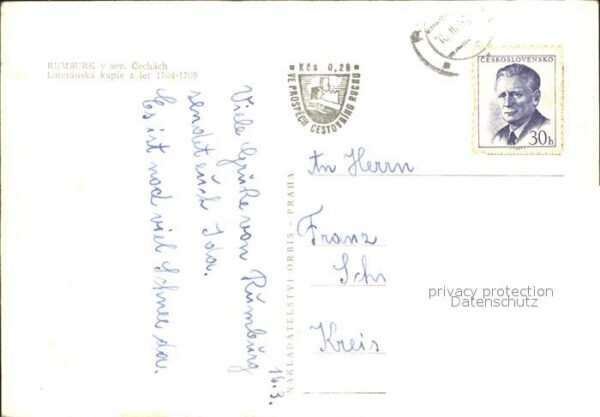 RUMBURK v sev. Čechách
Loretánská kaple z let 1704-1709
Kčs 0,20
VE PROSPĚCH CESTOVNÍHO RUCHU
ČESKOSLOVENSKO
30h
Viele Grüße von Rumburg
sendet euch Ida.
Es ist noch viel Schnee da.
16.3.
NAKLADATELSTVÍ ORBIS - PRAHA
An Herrn
Franz
Schr
Kreis
privacy protection
Datenschutz